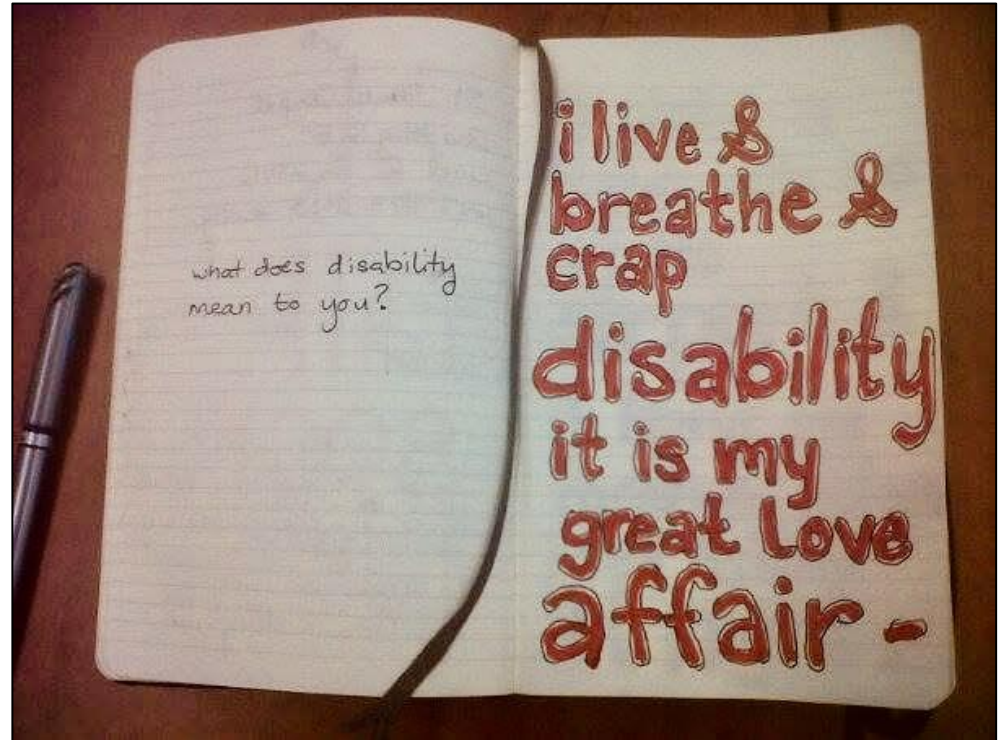 what does disability
mean to you?
i live &
breathe &
crap
disability
it is my
great love
affair -